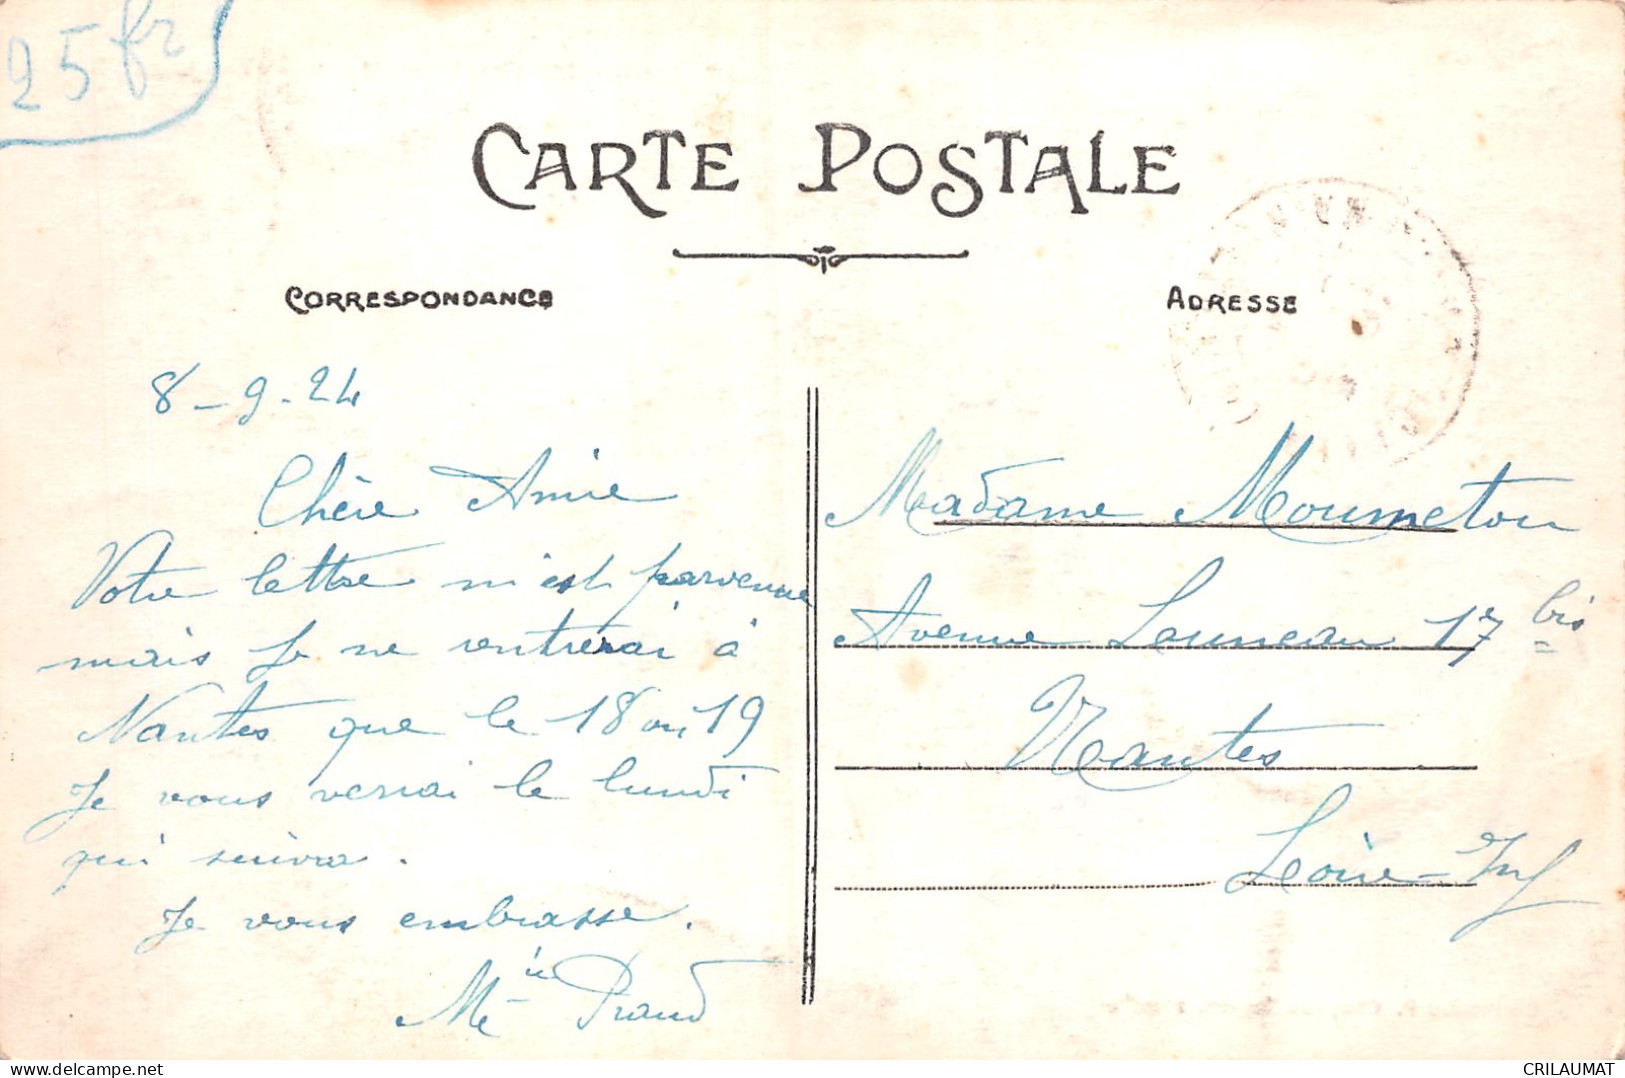 25 fr
CARTE POSTALE
CORRESPONDANCE
ADRESSE
8-9-24
Chère Amie
Votre lettre m'est parvenue
mais je ne rentrerai à
Nantes que le 18 ou 19
Je vous verrai le lundi
qui suivra.
Je vous embrasse.
Mie Praud
Madame Moumeton
Avenue Launeau 17 bis
Nantes
Loire-Inf
delcampe.net
CRILAUMAT